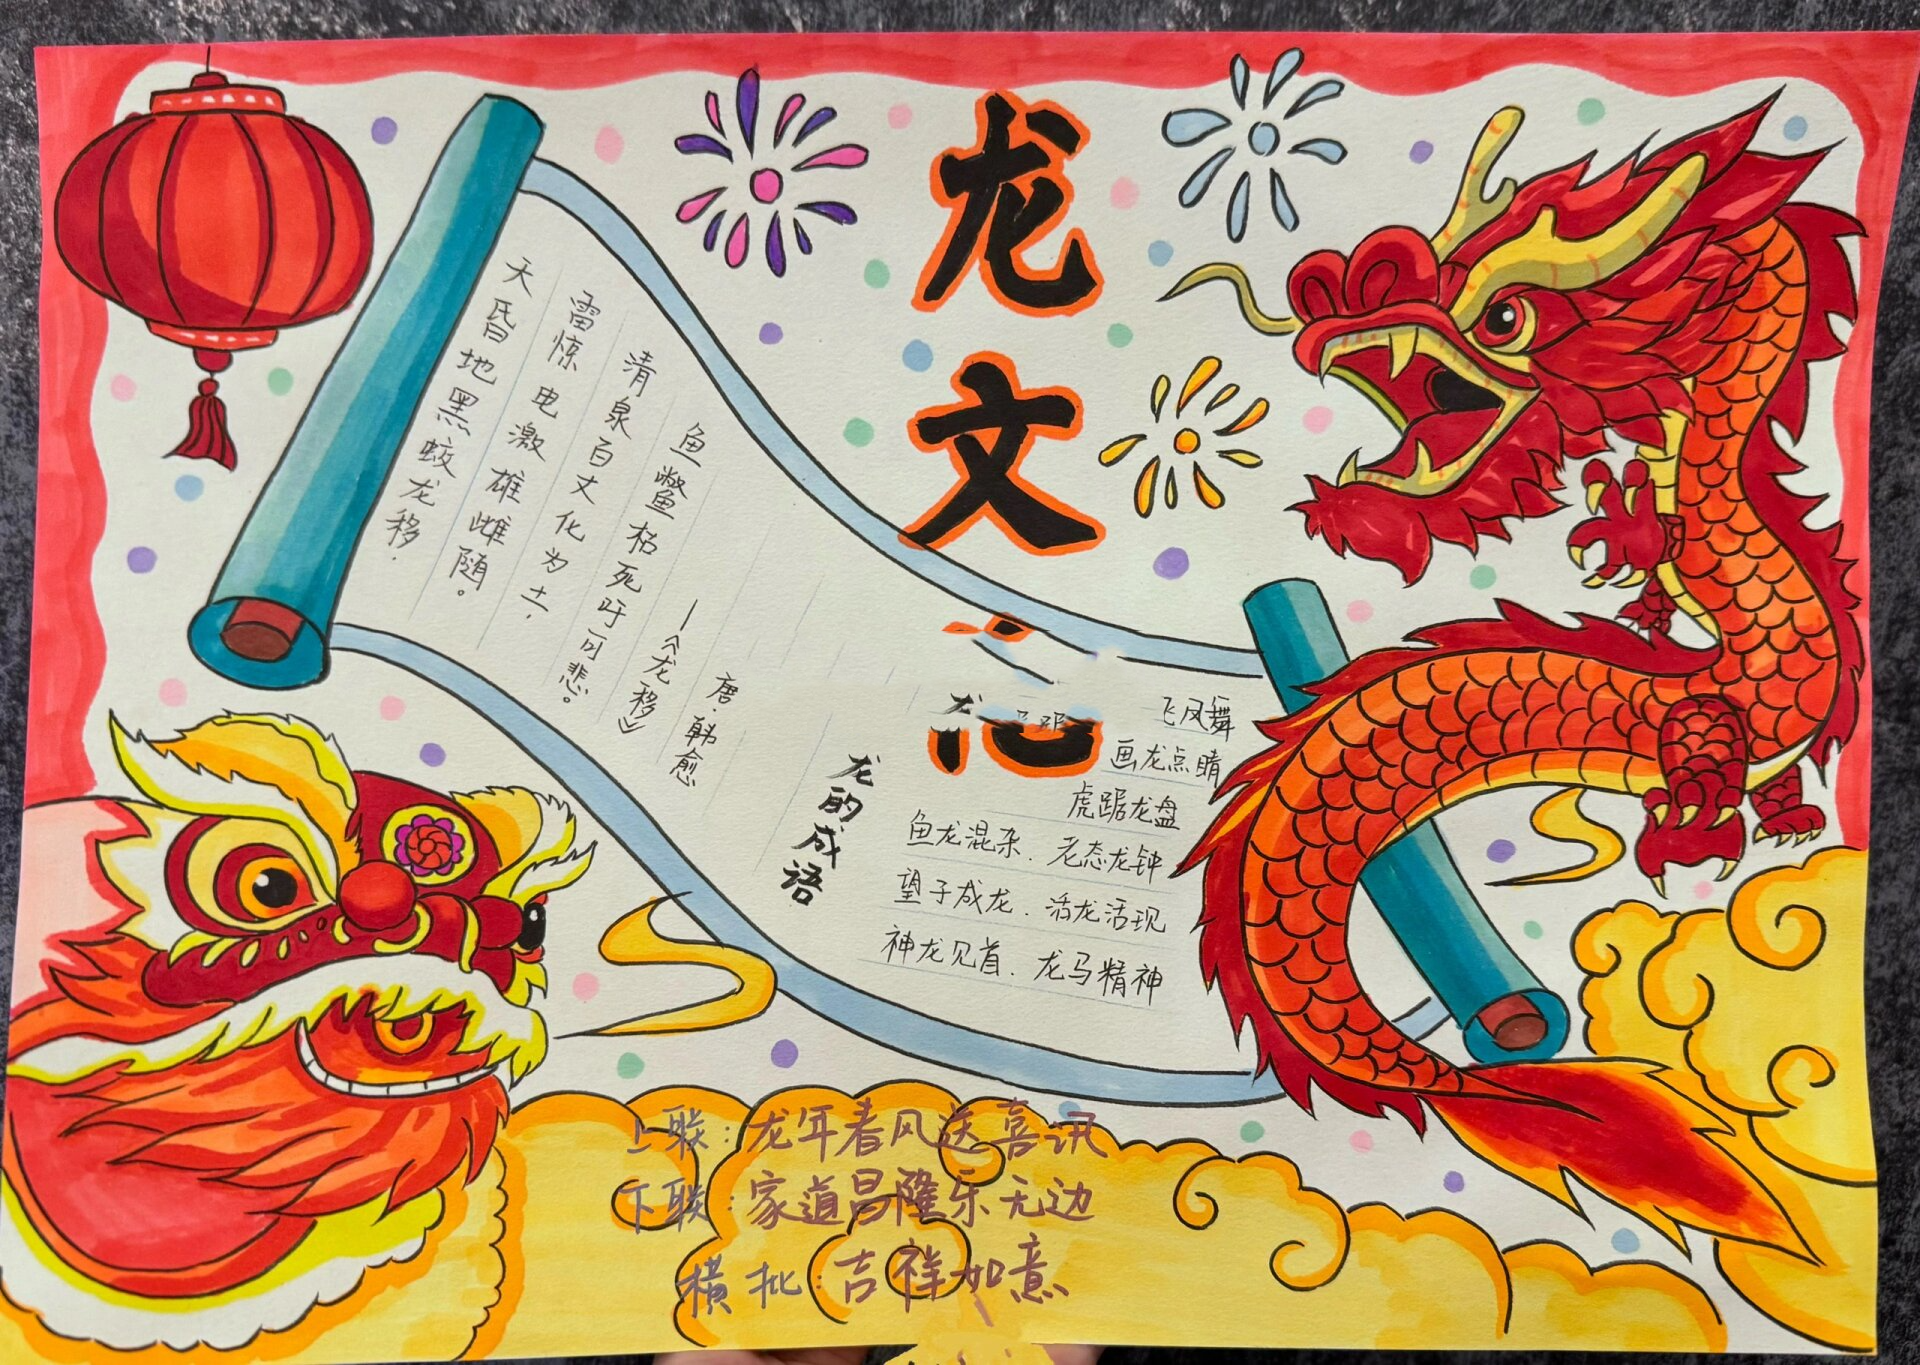 龙文
天昏地黑蛟龙移.
雷惊电激雄雌随。
清泉百丈化为土,
鱼鳖枯死吁可悲。
—《龙移》
唐·韩愈
龙的成语
飞凤舞
画龙点睛
虎踞龙盘
鱼龙混杂. 老态龙钟
望子成龙. 活龙活现
神龙见首. 龙马精神
上联:龙年春风送喜讯
下联:家道昌隆乐无边
横批:吉祥如意